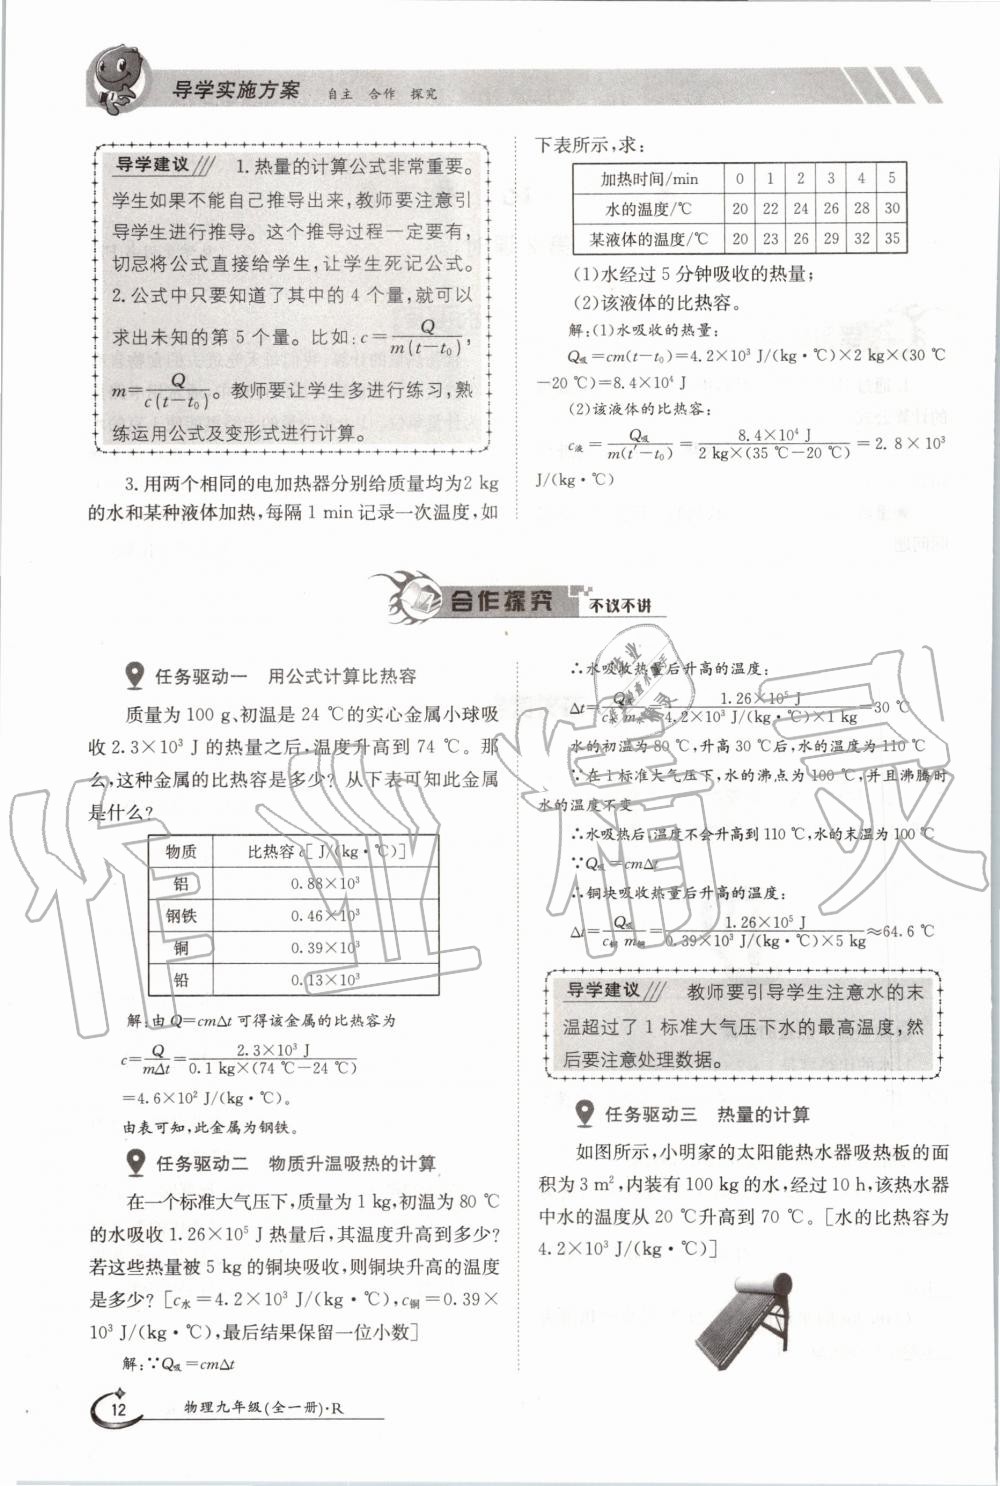 导学实施方案 自主 合作 探究
导学建议/// 1.热量的计算公式非常重要。
学生如果不能自己推导出来,教师要注意引
导学生进行推导。这个推导过程一定要有,
切忌将公式直接给学生,让学生死记公式。
2.公式中只要知道了其中的 4 个量,就可以
求出未知的第 5 个量。比如:c=Q/m(t-t₀),
m=Q/c(t-t₀)。教师要让学生多进行练习,熟
练运用公式及变形式进行计算。
3.用两个相同的电加热器分别给质量均为2 kg
的水和某种液体加热,每隔 1 min 记录一次温度,如
下表所示,求:
加热时间/min 0 1 2 3 4 5
水的温度/℃ 20 22 24 26 28 30
某液体的温度/℃ 20 23 26 29 32 35
(1)水经过 5 分钟吸收的热量;
(2)该液体的比热容。
解:(1)水吸收的热量:
Q吸=cm(t-t₀)=4.2×10³ J/(kg·℃)×2 kg×(30 ℃
-20 ℃)=8.4×10⁴ J
(2)该液体的比热容:
c液=Q吸/m(t′-t₀)=8.4×10⁴ J/2 kg×(35 ℃-20 ℃)=2.8×10³
J/(kg·℃)
合作探究 不议不讲
任务驱动一 用公式计算比热容
质量为 100 g、初温是 24 ℃的实心金属小球吸
收 2.3×10³ J 的热量之后,温度升高到 74 ℃。那
么,这种金属的比热容是多少? 从下表可知此金属
是什么?
物质 比热容 c[J/(kg·℃)]
铝 0.88×10³
钢铁 0.46×10³
铜 0.39×10³
铅 0.13×10³
解:由 Q=cmΔt 可得该金属的比热容为
c=Q/mΔt=2.3×10³ J/0.1 kg×(74 ℃-24 ℃)
=4.6×10² J/(kg·℃)。
由表可知,此金属为钢铁。
任务驱动二 物质升温吸热的计算
在一个标准大气压下,质量为 1 kg,初温为 80 ℃
的水吸收 1.26×10⁵ J 热量后,其温度升高到多少?
若这些热量被 5 kg 的铜块吸收,则铜块升高的温度
是多少? [c水=4.2×10³ J/(kg·℃),c铜=0.39×
10³ J/(kg·℃),最后结果保留一位小数]
解:∵Q吸=cmΔt
∴水吸收热量后升高的温度:
Δt=Q吸/c水m水=1.26×10⁵ J/4.2×10³ J/(kg·℃)×1 kg=30 ℃
水的初温为 80 ℃,升高 30 ℃后,水的温度为 110 ℃
∵在 1 标准大气压下,水的沸点为 100 ℃,并且沸腾时
水的温度不变
∴水吸热后,温度不会升高到 110 ℃,水的末温为 100 ℃
∵Q吸=cmΔt
∴铜块吸收热量后升高的温度:
Δt=Q吸/c铜m铜=1.26×10⁵ J/0.39×10³ J/(kg·℃)×5 kg≈64.6 ℃
导学建议/// 教师要引导学生注意水的末
温超过了 1 标准大气压下水的最高温度,然
后要注意处理数据。
任务驱动三 热量的计算
如图所示,小明家的太阳能热水器吸热板的面
积为 3 m²,内装有 100 kg 的水,经过 10 h,该热水器
中水的温度从 20 ℃升高到 70 ℃。[水的比热容为
4.2×10³ J/(kg·℃)]
12 物理九年级(全一册)·R
作业精灵